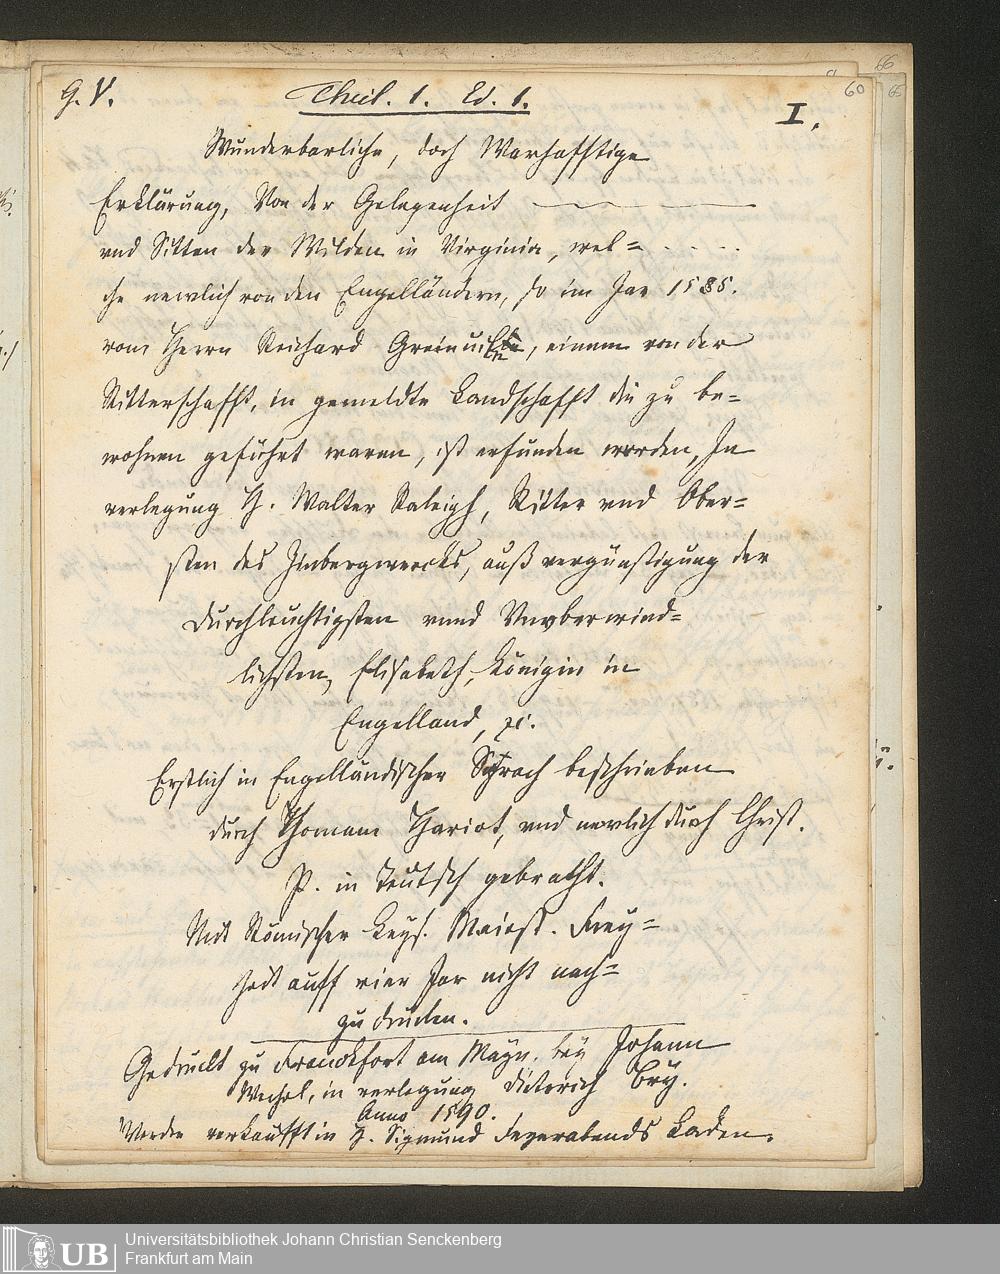 G. V. Theil. 1. Ed. 1. 60
I.
Wunderbarliche, doch Warhafftige
Erklärung, Von der Gelegenheit
vnd Sitten der Wilden in Virginia, wel=
che newlich von den Engelländern, so im Jar 1585.
vom Herrn Reichard Greinuile, einem von der
Ritterschafft, in gemeldte Landschafft die zu be=
wohnen geführt waren, ist erfunden worden, In
verlegung H. Walter Raleigh, Ritter vnd Ober=
sten des Zinbergwercks, auß vergünstigung der
Durchleuchtigsten vnnd Vnvberwind=
lichsten, Elisabeth, Königin in
Engelland, ꝛc.
Erstlich in Engelländischer Sprach beschrieben
durch Thomam Hariot, vnd newlich durch Christ.
P. in Teutsch gebracht.
Mit Römischer Keys. Maiest. Frey=
heit auff vier Jar nicht nach=
zudrucken.
Gedruckt zu Franckfort am Mayn, bey Johann
Wechel, in verlegung Dieterich Bry.
Anno 1590.
Werden verkaufft in H. Sigmund Feyerabends Laden.
UB
Universitätsbibliothek Johann Christian Senckenberg
Frankfurt am Main